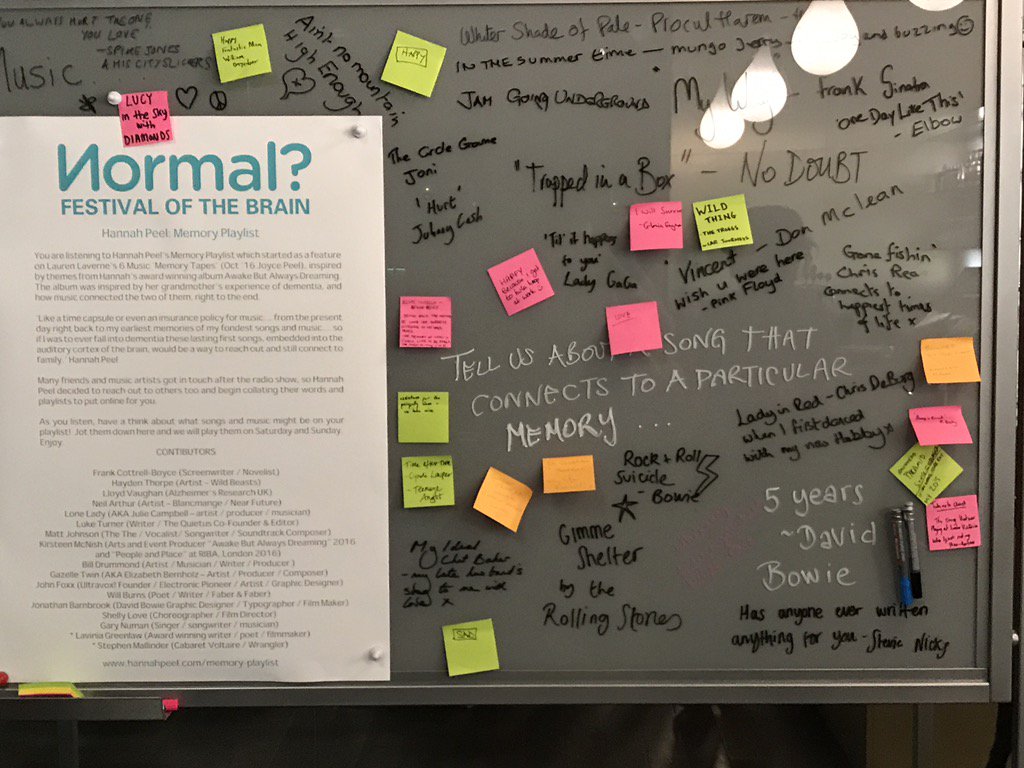 YOU ALWAYS HURT THE ONE
YOU LOVE
- SPIKE JONES
& HIS CITY SLICKERS
Music
Happy
Fantastic Man
William
Onyeabor
Ain't no mountain
High Enough
HAPPY
Whiter Shade of Pale - Procul Harem -
IN THE SUMMER time - mungo Jerry - and buzzing
JAM GOING UNDERGROUND
My Way - frank Sinatra
'One Day Like This'
- Elbow
LUCY
in the SKY
with
DIAMONDS
The Circle Game
Joni
'Hurt'
Johnny Cash
"Trapped in a Box" - NO DOUBT
I will Survive
- Gloria Gaynor
WILD
THING
- THE TROGGS
'Til it happens
to you'
Lady GaGa
'Vincent' - Don Mclean
Wish u were here
- Pink Floyd
Gone fishin'
Chris Rea
connects to
happiest times
of life x
HAPPY
LOVE
TELL US ABOUT A SONG THAT
CONNECTS TO A PARTICULAR
MEMORY ...
Lady in Red - Chris DeBurg
when I first danced
with my now Hubbby x
Time After Time
- Cyndi Lauper
- Teenage
Angst
Rock + Roll
Suicide
- Bowie
Gimme
Shelter
by the
Rolling Stones
5 years
~David
Bowie
My Ideal
Chet Baker
- my late husband's
SAD
Has anyone ever written
anything for you - Stevie Nicks
Normal?
FESTIVAL OF THE BRAIN
Hannah Peel: Memory Playlist
You are listening to Hannah Peel's Memory Playlist which started as a feature
on Lauren Laverne's 6 Music 'Memory Tapes' (Oct '16 Joyce Peel), inspired
by themes from Hannah's award winning album Awake But Always Dreaming.
The album was inspired by her grandmother's experience of dementia, and
how music connected the two of them, right to the end.
'Like a time capsule or even an insurance policy for music... from the present
day right back to my earliest memories of my fondest songs and music... so
if I was to ever fall into dementia these lasting first songs, embedded into the
auditory cortex of the brain, would be a way to reach out and still connect to
family.' Hannah Peel
Many friends and music artists got in touch after the radio show, so Hannah
Peel decided to reach out to others too and begin collating their words and
playlists to put online for you.
As you listen, have a think about what songs and music might be on your
playlist! Jot them down here and we will play them on Saturday and Sunday.
Enjoy.
CONTIBUTORS:
Frank Cottrell-Boyce (Screenwriter / Novelist)
Hayden Thorpe (Artist – Wild Beasts)
Lloyd Vaughan (Alzheimer's Research UK)
Neil Arthur (Artist – Blancmange / Near Future)
Lone Lady (AKA Julie Campbell – artist / producer / musician)
Luke Turner (Writer / The Quietus Co-Founder & Editor)
Matt Johnson (The The / Vocalist/ Songwriter / Soundtrack Composer)
Kirsteen McNish (Arts and Event Producer "Awake But Always Dreaming" 2016
and "People and Place" at RIBA, London 2016)
Bill Drummond (Artist / Musician / Writer / Producer )
Gazelle Twin (AKA Elizabeth Bernholz – Artist / Producer / Composer)
John Foxx (Ultravox! Founder / Electronic Pioneer / Artist / Graphic Designer)
Will Burns (Poet / Writer / Faber & Faber)
Jonathan Barnbrook (David Bowie Graphic Designer / Typographer / Film Maker)
Shelly Love (Choreographer / Film Director)
Gary Numan (Singer / songwriter / musician)
* Lavinia Greenlaw (Award winning writer / poet / filmmaker)
* Stephen Mallinder (Cabaret Voltaire / Wrangler)
www.hannahpeel.com/memory-playlist